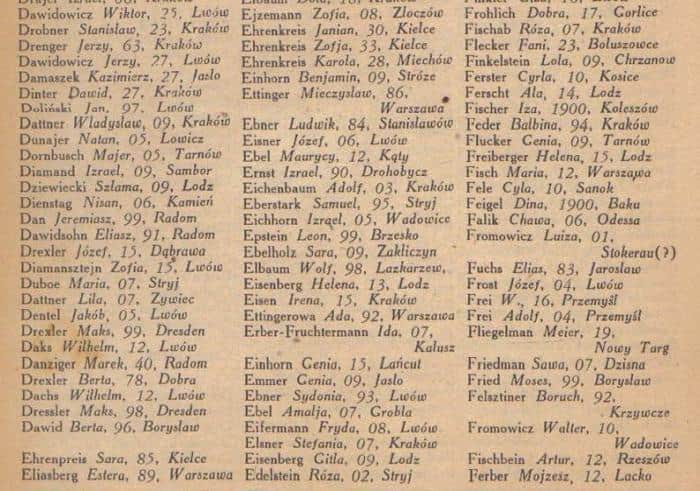 Dawidowicz Wiktor, 25, Lwów
Drobner Stanisław, 23, Kraków
Drenger Jerzy, 63, Kraków
Dawidowicz Jerzy, 27, Lwów
Damaszek Kazimierz, 27, Jasło
Dinter Dawid, 27, Kraków
Doliński Jan, 97, Lwów
Dattner Władysław, 09, Kraków
Dunajer Natan, 05, Łowicz
Dornbusch Majer, 05, Tarnów
Diamand Izrael, 09, Sambor
Dziewiecki Szlama, 09, Lodz
Dienstag Nisan, 06, Kamień
Dan Jeremiasz, 99, Radom
Dawidsohn Eliasz, 91, Radom
Drexler Józef, 15, Dąbrawa
Diamansztejn Zofia, 15, Lwów
Duboe Maria, 07, Stryj
Dattner Lila, 07, Zywiec
Dentel Jakób, 05, Lwów
Drexler Maks, 99, Dresden
Daks Wilhelm, 12, Lwów
Danziger Marek, 40, Radom
Drexler Berta, 78, Dobra
Dachs Wilhelm, 12, Lwów
Dressler Maks, 98, Dresden
Dawid Berta, 96, Borysław
Ehrenpreis Sara, 85, Kielce
Eliasberg Estera, 89, Warszawa
Ejzemann Zofia, 08, Złoczów
Ehrenkreis Janian, 30, Kielce
Ehrenkreis Zofja, 33, Kielce
Ehrenkreis Karola, 28, Miechów
Einhorn Benjamin, 09, Stróze
Ettinger Mieczysław, 86,
Warszawa
Ebner Ludwik, 84, Stanisławów
Eisner Józef, 06, Lwów
Ebel Maurycy, 12, Kąty
Ernst Izrael, 90, Drohobycz
Eichenbaum Adolf, 03, Kraków
Eberstark Samuel, 95, Stryj
Eichhorn Izrael, 05, Wadowice
Epstein Leon, 99, Brzesko
Ebelholz Sara, 09, Zakliczyn
Elbaum Wolf, 98, Lazkarzew,
Eisenberg Helena, 13, Lodz
Eisen Irena, 15, Kraków
Ettingerowa Ada, 92, Warszawa
Erber-Fruchtermann Ida, 07,
Kalusz
Einhorn Genia, 15, Łańcut
Emmer Genia, 09, Jasło
Ebner Sydonia, 93, Lwów
Ebel Amalja, 07, Grobla
Eifermann Fryda, 08, Lwów
Elsner Stefania, 07, Kraków
Eisenberg Gitla, 09, Lodz
Edelstein Róza, 02, Stryj
Frohlich Dobra, 17, Gorlice
Fischab Róza, 07, Kraków
Flecker Fani, 23, Boluszowce
Finkelstein Lola, 09, Chrzanow
Ferster Cyrla, 10, Kosice
Ferscht Ala, 14, Lodz
Fischer Iza, 1900, Koleszów
Feder Balbina, 94, Kraków
Flucker Genia, 09, Tarnów
Freiberger Helena, 15, Lodz
Fisch Maria, 12, Warszawa
Fele Cyla, 10, Sanok
Feigel Dina, 1900, Baku
Falik Chawa, 06, Odessa
Fromowicz Luiza, 01,
Stokerau(?)
Fuchs Elias, 83, Jarosław
Frost Józef, 04, Lwów
Frei W., 16, Przemyśl
Frei Adolf, 04, Przemyśl
Fliegelman Meier, 19,
Nowy Targ
Friedman Sawa, 07, Dzisna
Fried Moses, 99, Borysław
Felsztiner Boruch, 92,
Krzywcze
Fromowicz Walter, 10,
Wadowice
Fischbein Artur, 12, Rzeszów
Ferber Mojzesz, 12, Lacko